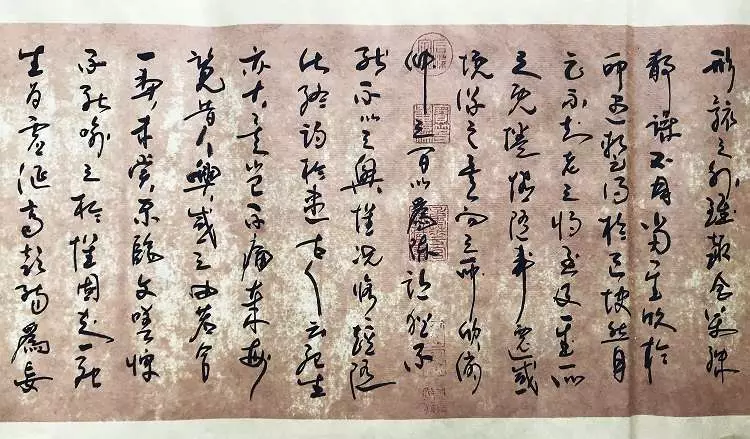 形骸之外雖趣舍萬殊
靜躁不同當其欣於
所遇暫得於己快然自
足不知老之將至及其所
之既惓情隨事遷感
慨係之矣向之所欣俛
仰之間以為陳迹猶不
能不以之興懷況脩短隨
化終期於盡古人云死生
亦大矣豈不痛哉每
覽昔人興感之由若合
一契未嘗不臨文嗟悼
不能喻之於懷固知一死
生為虛誕齊彭殤為妄